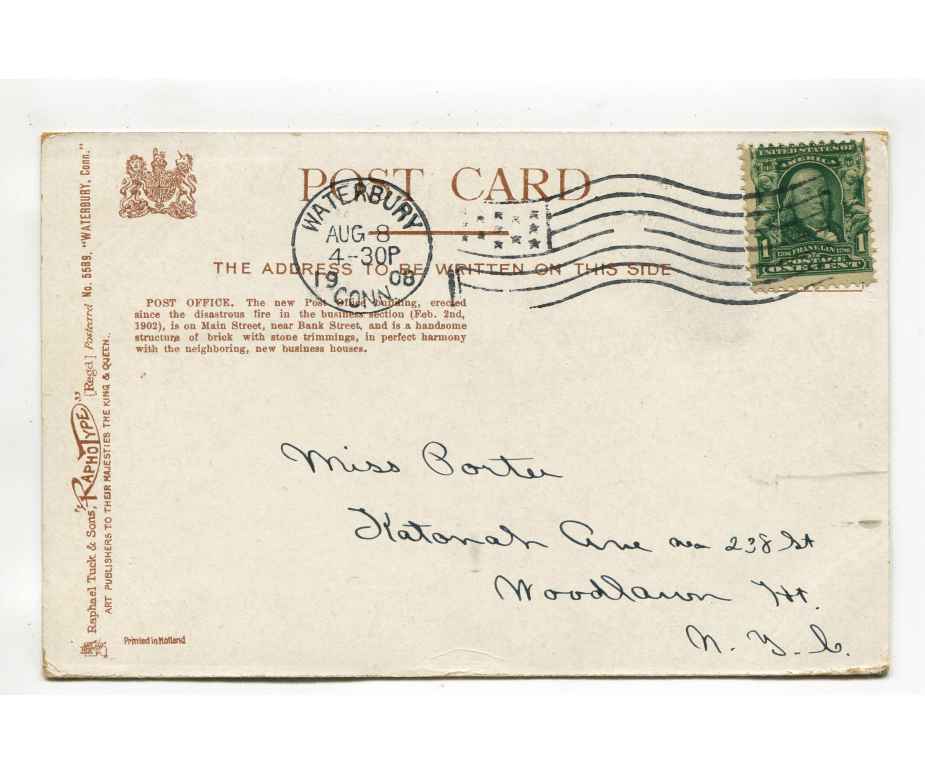 POST CARD
WATERBURY
AUG 8
4-30P
19 08
CONN.
UNITED STATES OF
AMERICA
FRANKLIN
POSTAGE
1 ONE CENT 1
THE ADDRESS TO BE WRITTEN ON THIS SIDE
POST OFFICE. The new Post Office building, erected
since the disastrous fire in the business section (Feb. 2nd,
1902), is on Main Street, near Bank Street, and is a handsome
structure of brick with stone trimmings, in perfect harmony
with the neighboring, new business houses.
Miss Porter
Katonah Ave near 238 St
Woodlawn Ht.
N. Y. C.
Raphael Tuck & Sons' "RAPHOTYPE" [Regd.] Postcard No. 5589, "WATERBURY, Conn."
ART PUBLISHERS TO THEIR MAJESTIES THE KING & QUEEN.
Printed in Holland